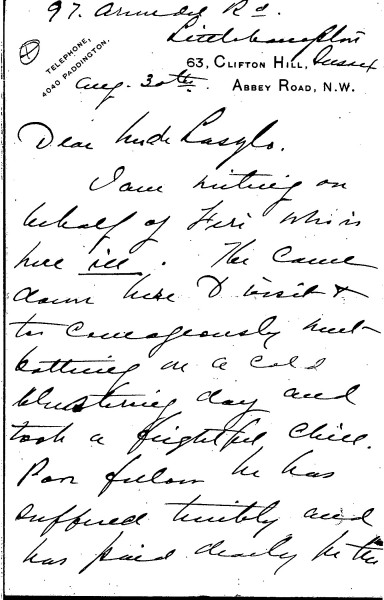 97. Arundel Rd.
Littlehampton
Sussex
TELEPHONE,
4040 PADDINGTON.
63, CLIFTON HILL,
ABBEY ROAD, N.W.
Aug. 30th.
Dear Mrs de Laszlo.
I am writing on
behalf of Feri who is
here ill. He came
down here to visit &
too courageously went
bathing on a cold
blustering day and
took a frightful chill.
Poor fellow he has
suffered terribly and
has paid dearly for the